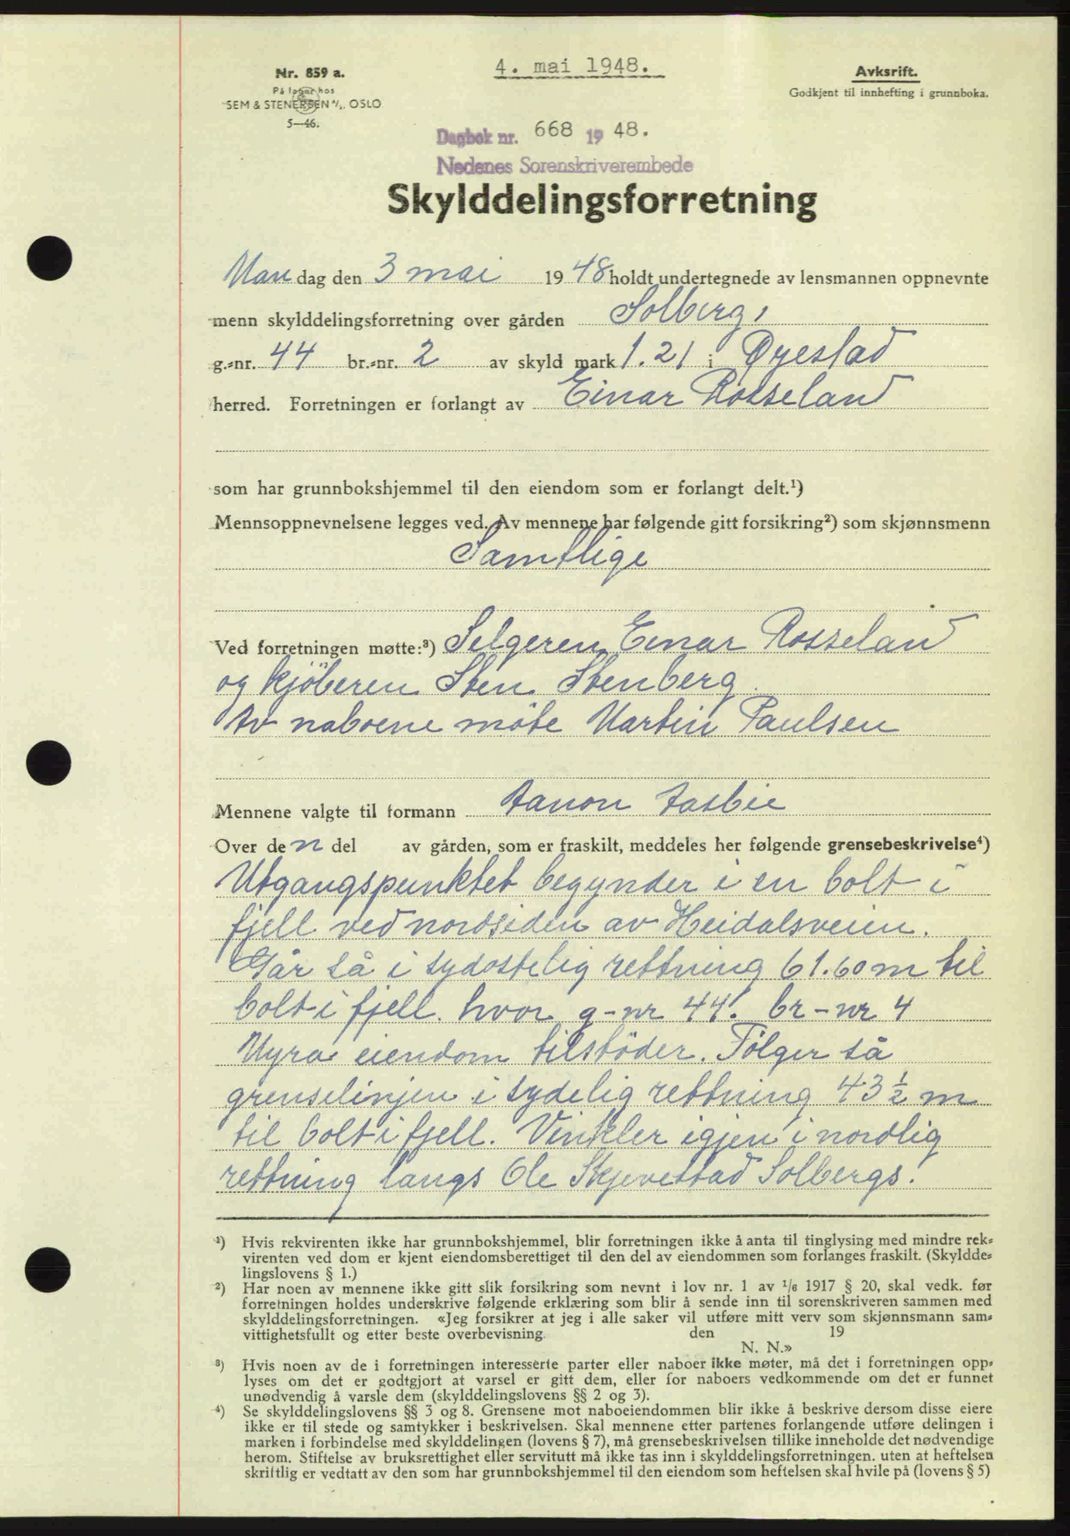 Nr. 859 a.
På lager hos
SEM & STENERSEN A/S, OSLO
5—46.
4. mai 1948.
Avksrift.
Godkjent til innhefting i grunnboka.
Dagbok nr. 668 19 48.
Nedenes Sorenskriverembede
Skylddelingsforretning
Mandag den 3 mai 1948 holdt undertegnede av lensmannen oppnevnte
menn skylddelingsforretning over gården Solberg,
g.-nr. 44 br.-nr. 2 av skyld mark 1.21 i Øyestad
herred. Forretningen er forlangt av Einar Rosseland
som har grunnbokshjemmel til den eiendom som er forlangt delt.¹)
Mennsoppnevnelsene legges ved. Av mennene har følgende gitt forsikring²) som skjønnsmenn
Samtlige
Ved forretningen møtte:³) Selgeren Einar Rosseland
og kjöberen Sten Stenberg
Av naboene möte Martin Paulsen
Mennene valgte til formann Aanon
Over den del av gården, som er fraskilt, meddeles her følgende grensebeskrivelse⁴)
Utgangspunktet begynder i en bolt i
fjell ved nordsiden av Heidalsveien.
Går så i sydostelig rettning 61.60 m til
bolt i fjell. hvor g-nr 44. br-nr 4
Myra eiendom tilstöder. Fölger så
grenselinjen i sydelig rettning 43 ½ m
til bolt i fjell. Vinkler igjen i nordlig
rettning langs Ole Skjevestad Solbergs.
¹) Hvis rekvirenten ikke har grunnbokshjemmel, blir forretningen ikke å anta til tinglysing med mindre rek-
virenten ved dom er kjent eiendomsberettiget til den del av eiendommen som forlanges fraskilt. (Skyldde-
lingslovens § 1.)
²) Har noen av mennene ikke gitt slik forsikring som nevnt i lov nr. 1 av 1/6 1917 § 20, skal vedk. før
forretningen holdes underskrive følgende erklæring som blir å sende inn til sorenskriveren sammen med
skylddelingsforretningen. «Jeg forsikrer at jeg i alle saker vil utføre mitt verv som skjønnsmann sam-
vittighetsfullt og etter beste overbevisning. den 19
N. N.»
³) Hvis noen av de i forretningen interesserte parter eller naboer ikke møter, må det i forretningen opp-
lyses om det er godtgjort at varsel er gitt dem, eller for naboers vedkommende om det er funnet
unødvendig å varsle dem (skylddelingslovens §§ 2 og 3).
⁴) Se skylddelingslovens §§ 3 og 8. Grensene mot naboeiendommen blir ikke å beskrive dersom disse eiere
ikke er til stede og samtykker i beskrivelsen. Skal mennene etter partenes forlangende utføre delingen i
marken i forbindelse med skylddelingen (lovens § 7), må grensebeskrivelsen tillike inneholde det nødvendige
herom. Stiftelse av bruksrettighet eller servitutt må ikke tas inn i skylddelingsforretningen. uten at heftelsen
skriftlig er vedtatt av den som har grunnbokshjemmel til den eiendom som heftelsen skal hvile på (lovens § 5)